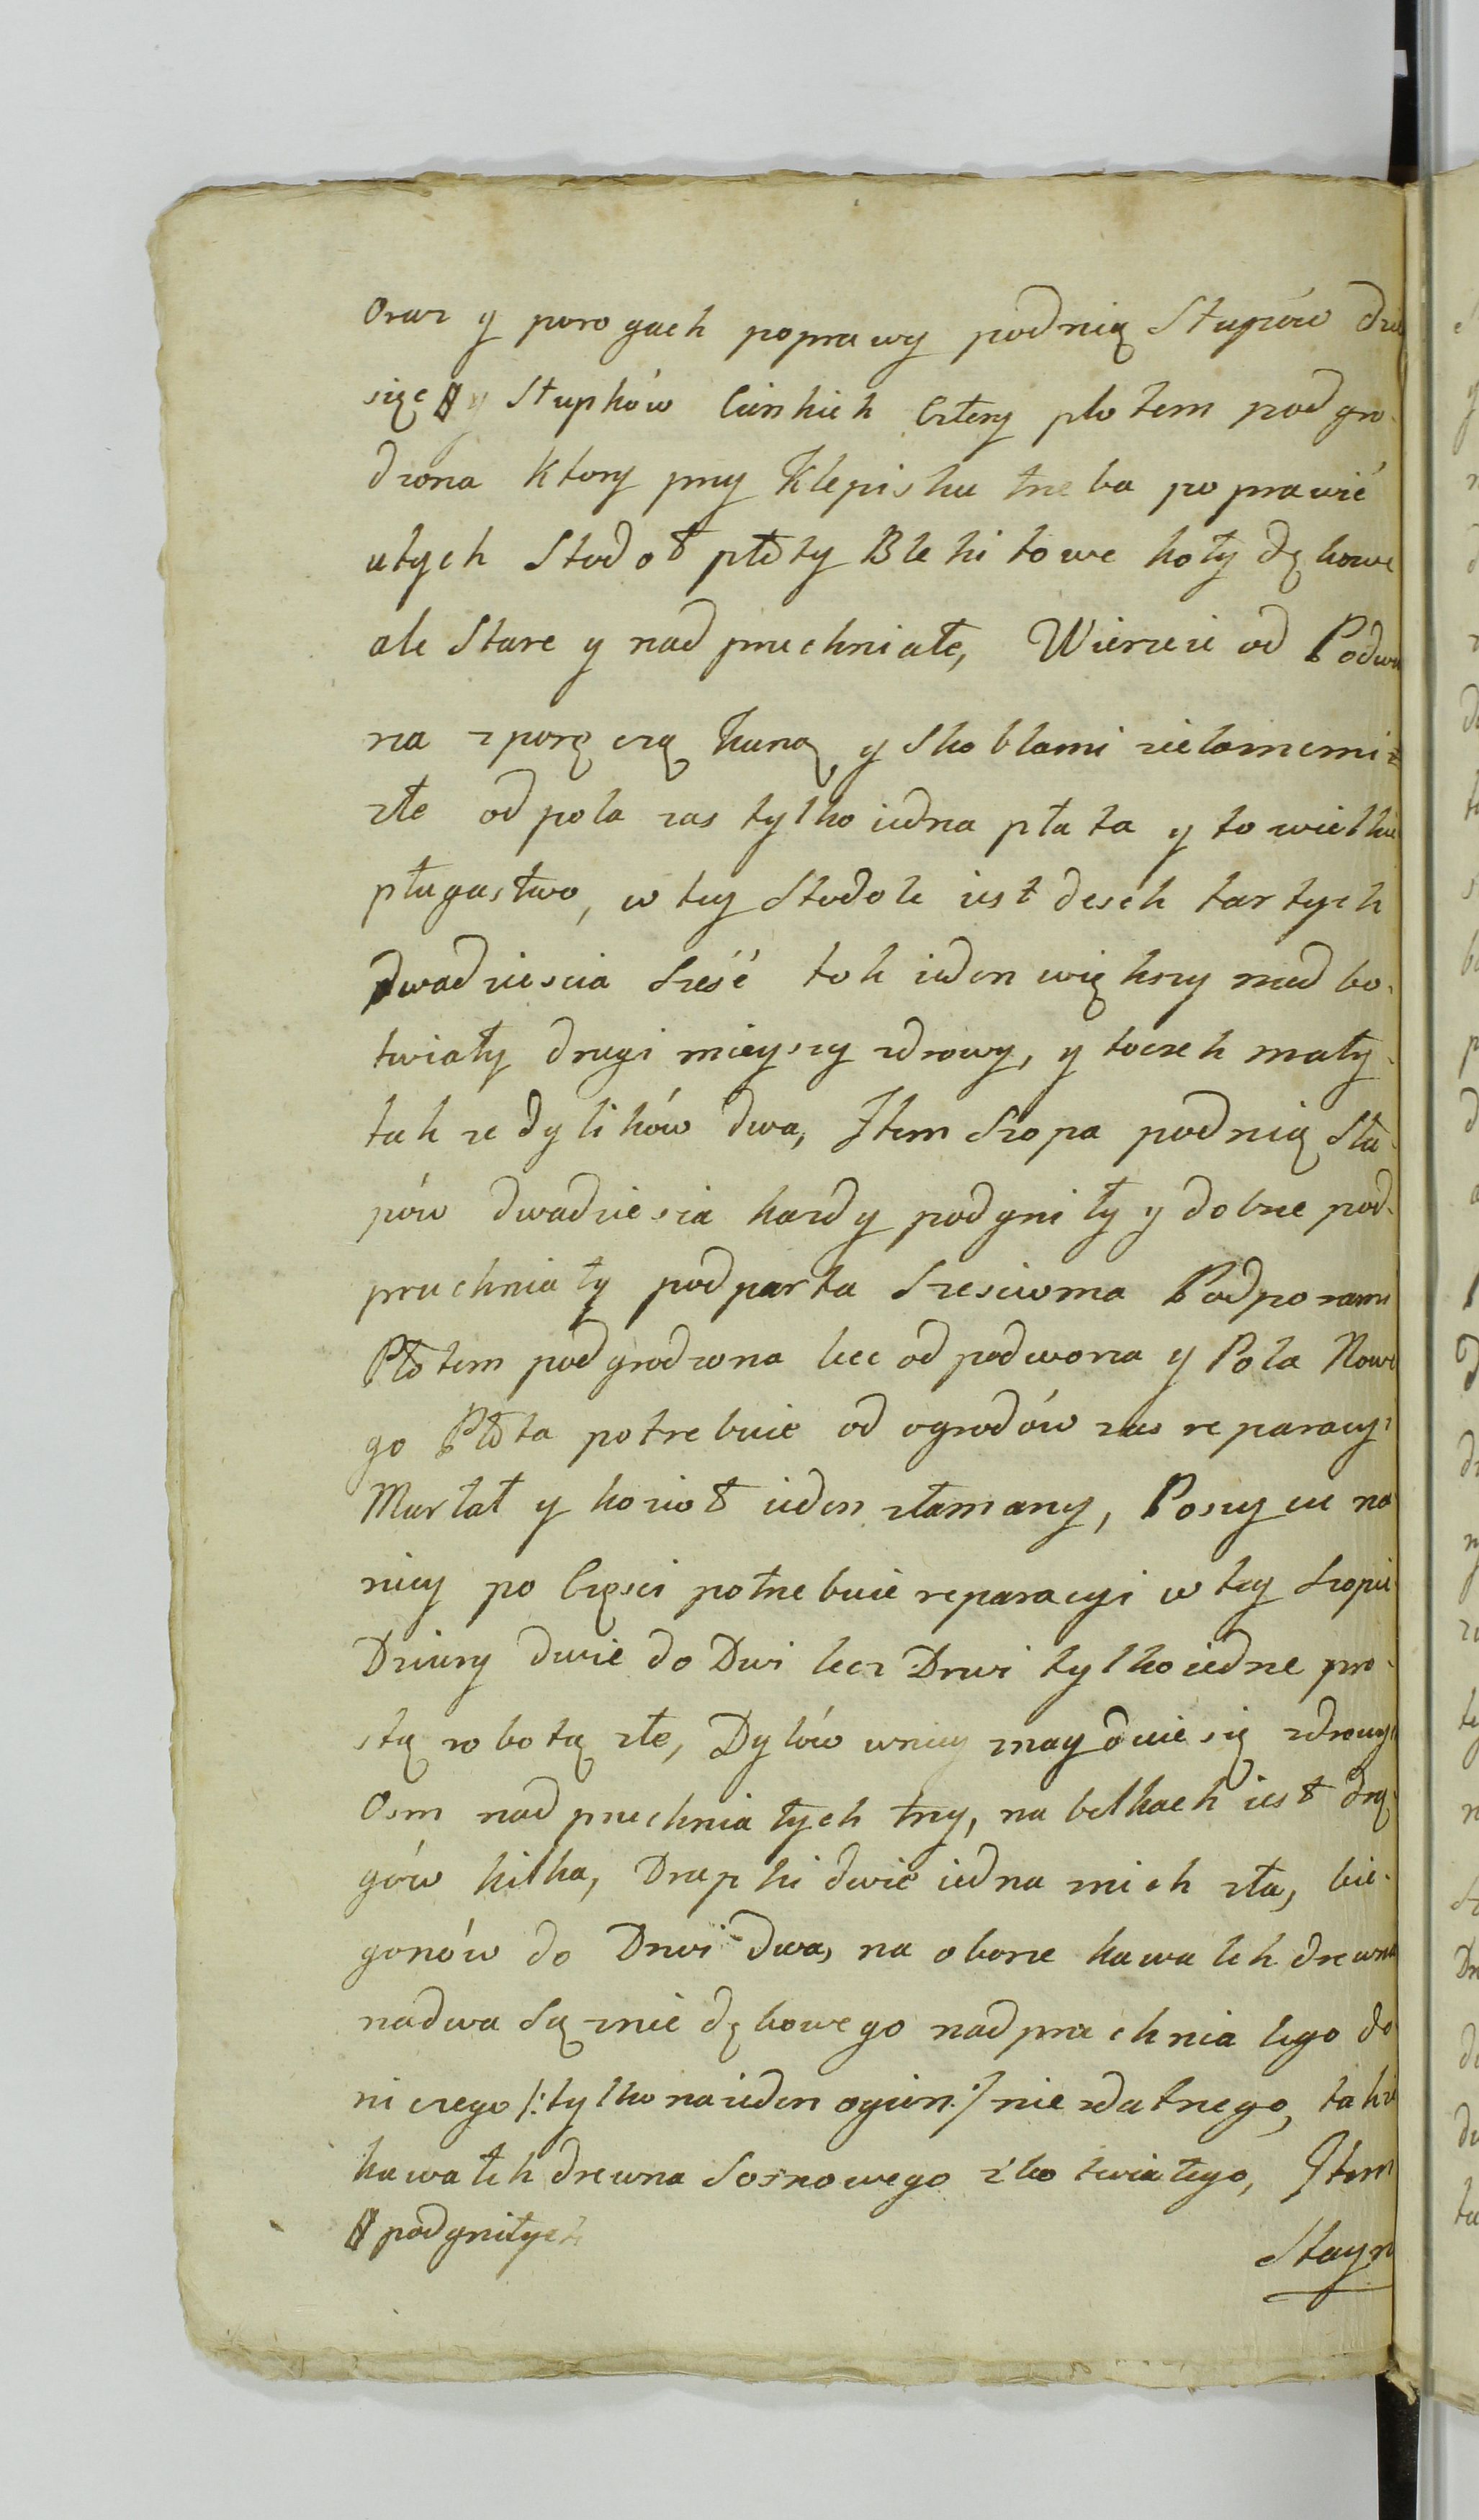 Oraz y porogach poprawy podnią Słupów dzie
sięć y Słupków Cienkich Cztery płotem podgro-
dzona ktory przy Klepisku trzeba poprawić
utych Stodoł płoty Blehitowe koły dębowe
ale Stare y nadpruchniałe, Wierzeie od Podwu
rza zporęczą kuną y Skoblami żielaznemi
złe od pola zas tylko iedna płata y to wielkie
plugastwo, w tey Stodole iest desek tartych
dwadziescia Sześć tok ieden większy nadbo-
twiały drugi mieyszy zdrowy, y toczek mały
takze dylików dwa, Item Szopa podnią Słu-
pów dwadziescia kazdy podgniły y dobrze pod-
pruchniały podparta Szescioma Podporami
Płotem podgrodzona lecz od podworza y Pola Nowe
go Płota potrzebuie od ogrodów zas reparacyi
Murłat y kozioł ieden złamany, Poszycie na
niey po Części potrzebuie reparacyi w tey Szopie
Dziury dwie do Dwi lecz Drzwi tylko iedne pro-
stą robotą złe, Dylów wniey znayduie się zdrowych
Osm nadpruchniałych trzy, na belkach iest drą-
gów kilka, Drapki dwie iedna znich zła, bie-
gonów do Drzwi dwa, na oborze kawałek drzewna
nadwa Sąznie dębowego nadpruchniałego do
niczego /: tylko naieden ogien :/ niezdatnego, takze
kawałek drzewna Sosnowego zbotwiałego, Item
podgniłych
Stayn